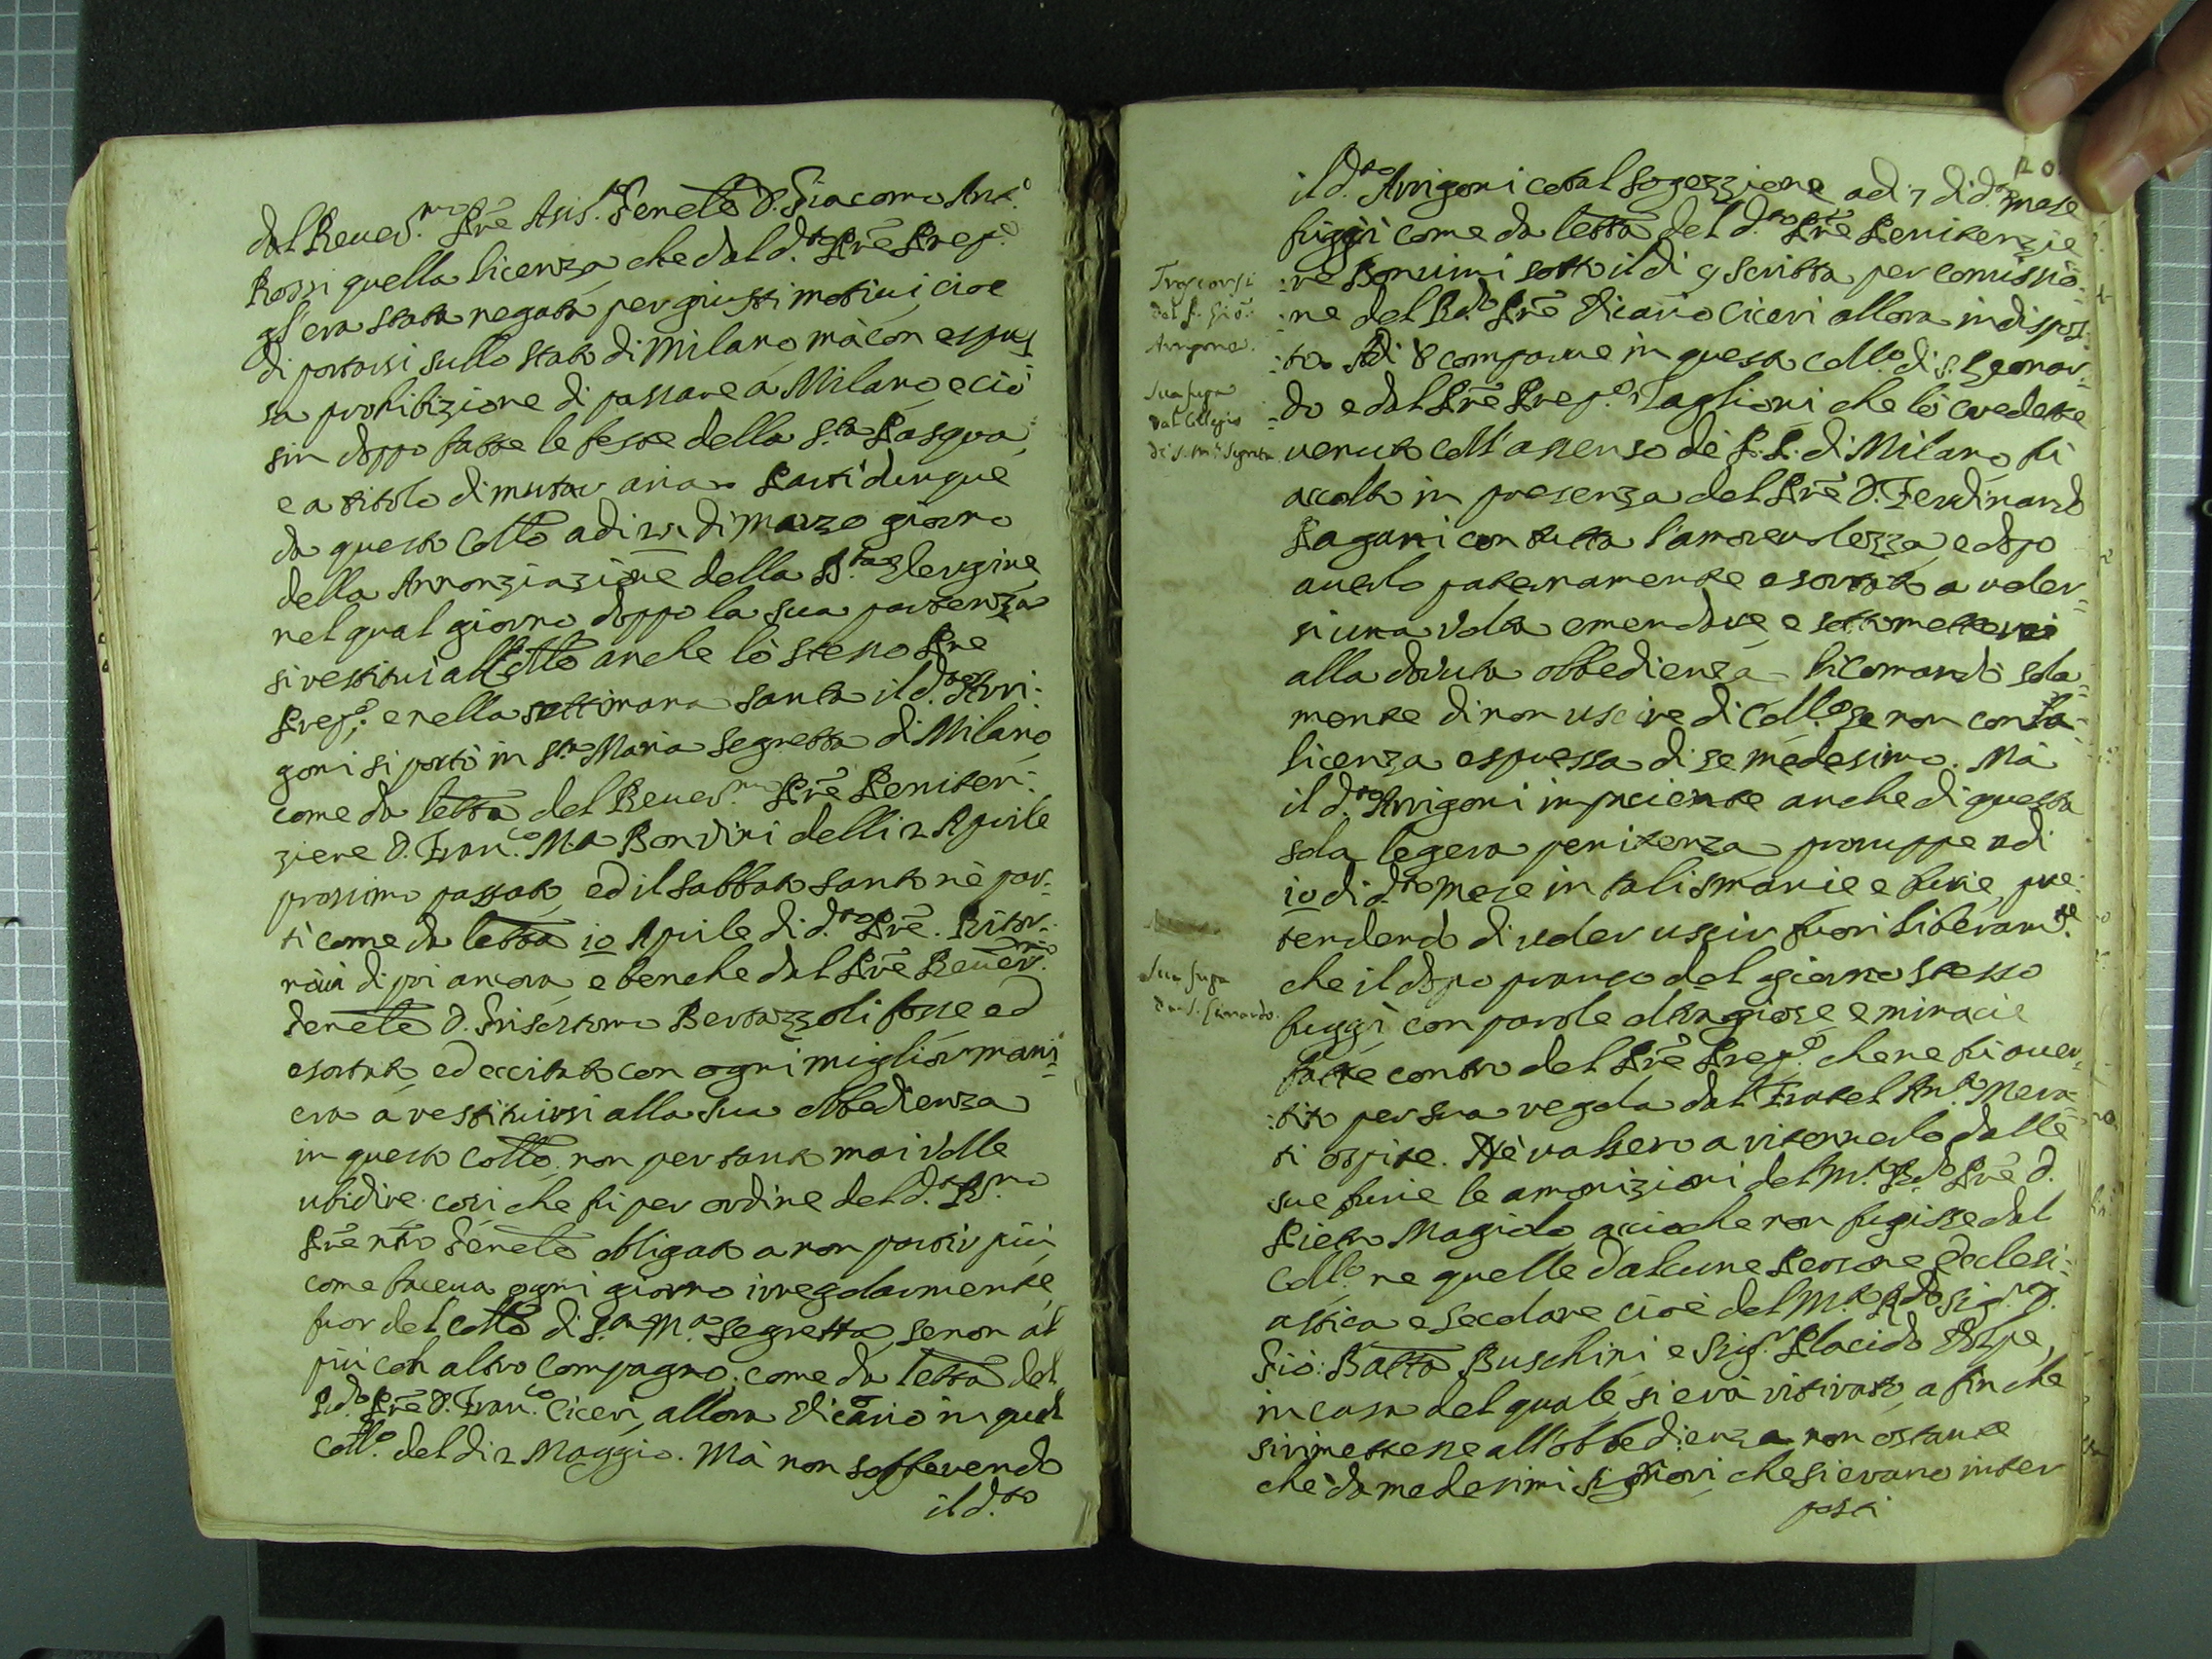 dal Reuer.mo Prē Asis.te Genēle D. Giacomo Ant.o
Rossi quella licenza che dal d.to Prē Prep.o
gl'era stata negata per giusti motiui cioe
di portarsi sullo stato di Milano mà con espres
sa prohibizione di passare a Milano, e ciò
sin doppo fatte le feste della S.ta Pasqua,
e a titolo di mutar aria. Partì dunque
da questo Collō adi 25 di Marzo giorno
della Annonziazione della B.ma Vergine
nel qual giorno doppo la sua partenza
si restituì al Collō anche lo stesso Prē
Prep.o; e nella settimana santa il d.to Arri-
goni si portò in S.ta Maria Segretta di Milano
come da lettā del Reuer.mo Prē Peniten-
ziere D. Fran.co M.a Bondini delli 2 Aprile
prossimo passato, ed il sabbato santo nè par-
tì come da lettā 10 Aprile di d.to Prē. Ritor-
nòui di poi ancora, e benche dal Prē Reuer.mo
Genēle D. Grisostomo Bertazzoli fosse ed
esortato ed eccitato con ogni miglior mani-
era à restituirsi alla sua obbedienza
in questo Collō, non per tanto mai volle
ubidire. così che fù per ordine del d.to R.mo
Prē nrō Genēle obligato a non portir più
come faceua ogni giorno irregolarmente
fuor del Collō di S.ta M.a Segretta, se non al
più con altro Compagno; come da lettā del
R.do Prē D. Fran.co Ciceri, allora Vicario in quel
Coll.o del di 2 Maggio. Mà non sofferendo
il d.to
20
il d.to Arrigoni cotal sogezzione adi 7 di d.to mese
fuggì come da lettā del d.to Prē Penitenzie
:re Bonuini sotto il di 9 scritta per comissio-
:ne del R.do Prē Vicario Ciceri allora indispos-
:to. Adi 8 comparue in questo Coll.o di S. Leonar-
:do e dal Prē Prep.o Taglioni che lo credette
uenuto coll'assenso de P.P. di Milano fù
accolto in presenza del Prē D. Ferdinando
Pagani con tutta l'amoreuolezza, e dopo
auerlo paternamente esortato a voler-
si una volta emendare e sottomettersi
alla douuta obbedienza - li comandò sola-
mente di non uscire di Coll.o se non con la
licenza espressa di se medesimo. Mà
il d.to Arrigoni impaciente anche di questa
sola legera penitenza proruppe adi
10 di d.to mese in tali smanie e furie, pre-
tendendo di uoler uscir fuori liberam.te
che il dopo pranso del giorno stesso
fuggì con parole oltragiose e minacie
fatte contro del Prē Prep.o che ne fù auer-
:tito per sua regola dal Fratel An.t Mera-
ti ospite. Nè valsero a ritenerlo dalle
sue furie le amonizioni del M.to R.do Prē D.
Pietro Magido accioche non fugisse dal
Coll.o ne quelle d'alcune Persone Ecclesi-
astica e Secolare cioè del M.to R.do Sig.r D.
Gio: Battā Buschini e Sig.r Placido Volpe,
in casa del quale si era ritirato, a fin che
si rimettesse all'obbedienza non ostante
che da medesimi Signori, che si erano inter
posti
Trascorsi
del P. Gio:
Arrigone.
Sua fuga
dal Collegio
di S. M.a Segreta.
Sua fuga
da S. Leonardo.